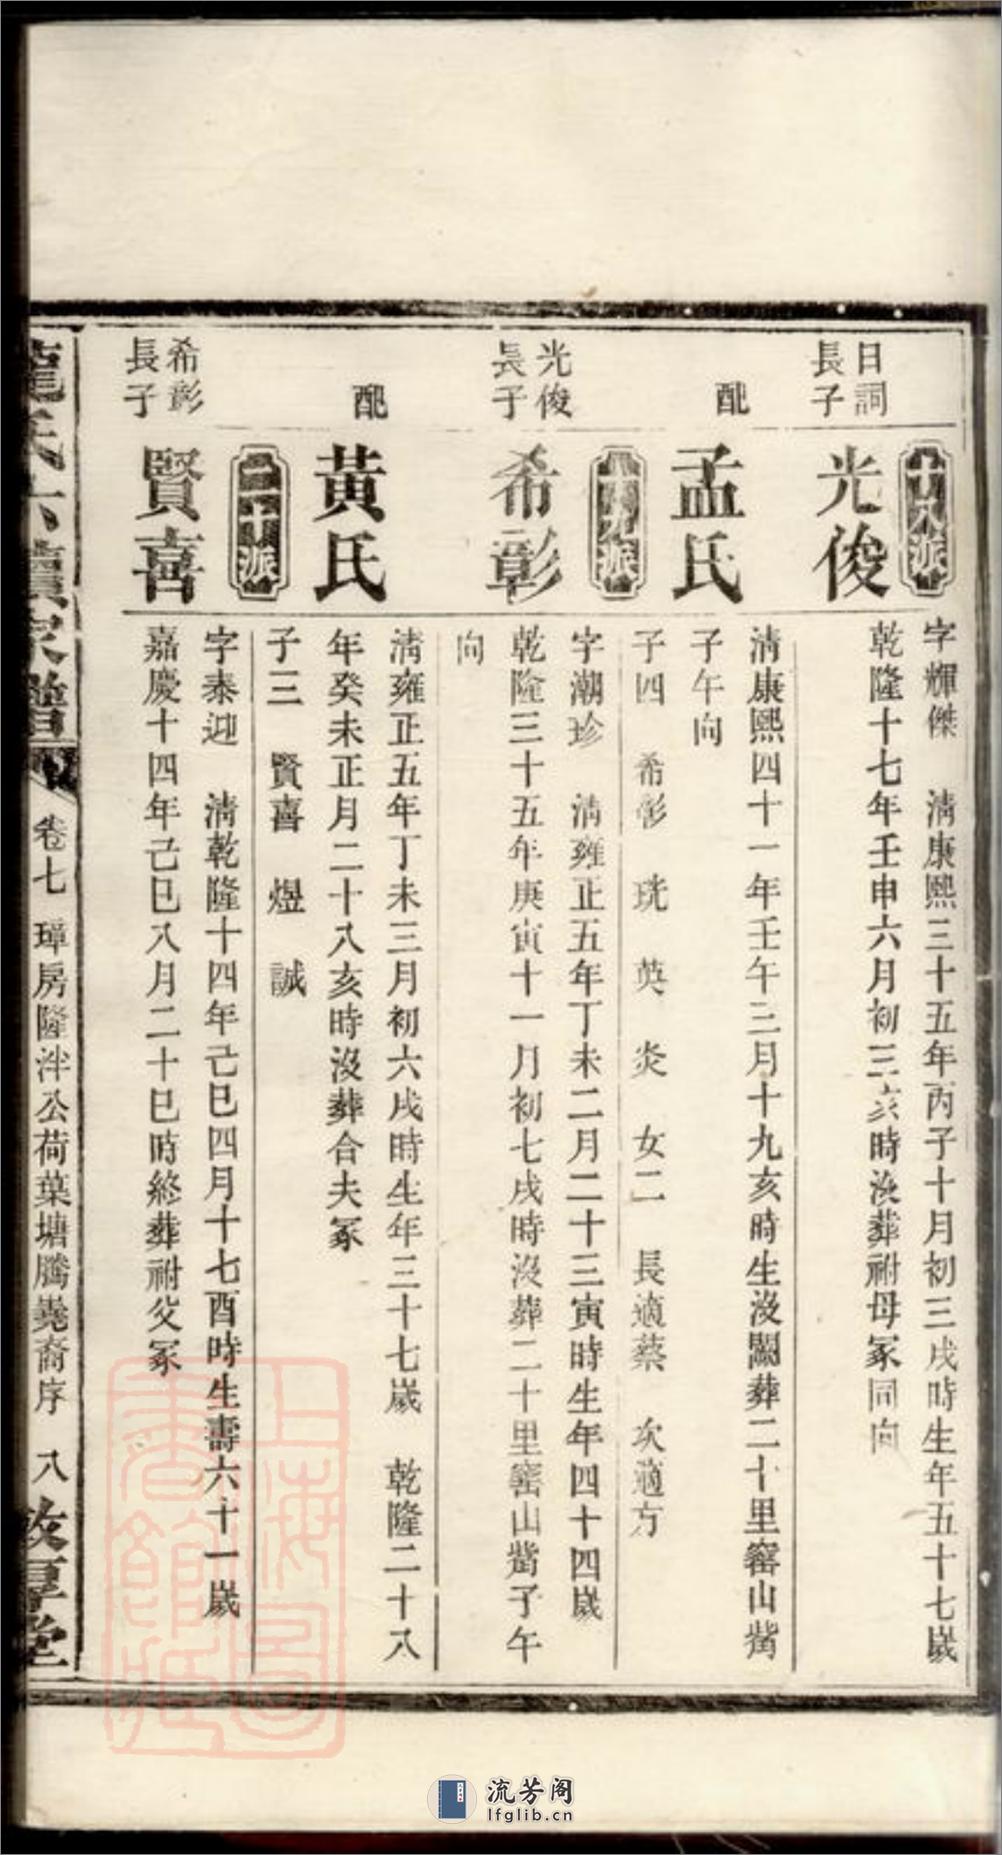 十八派
日詞
長子
光俊
字輝傑 清康熙三十五年丙子十月初三戌時生年五十七歲
乾隆十七年壬申六月初三亥時沒葬祔母冢同向
配
孟氏
清康熙四十一年壬午三月十九亥時生沒闕葬二十里窰山觜
子午向
子四 希彰 珖 英 炎 女二 長適蔡 次適方
十九派
光俊
長子
希彰
字潮珍 清雍正五年丁未二月二十三寅時生年四十四歲
乾隆三十五年庚寅十一月初七戌時沒葬二十里窰山觜子午
向
配
黃氏
清雍正五年丁未三月初六戌時生年三十七歲 乾隆二十八
年癸未正月二十八亥時沒葬合夫冢
子三 賢喜 煜 誠
二十派
希彰
長子
賢喜
字泰迎 清乾隆十四年己巳四月十七酉時生壽六十一歲
嘉慶十四年己巳八月二十巳時終葬祔父冢
龍氏六續家譜
卷七 璋房隆泮公荷葉塘騰堯裔序 八
敦厚堂
上海圖書館藏
流芳阁
lfglib.cn